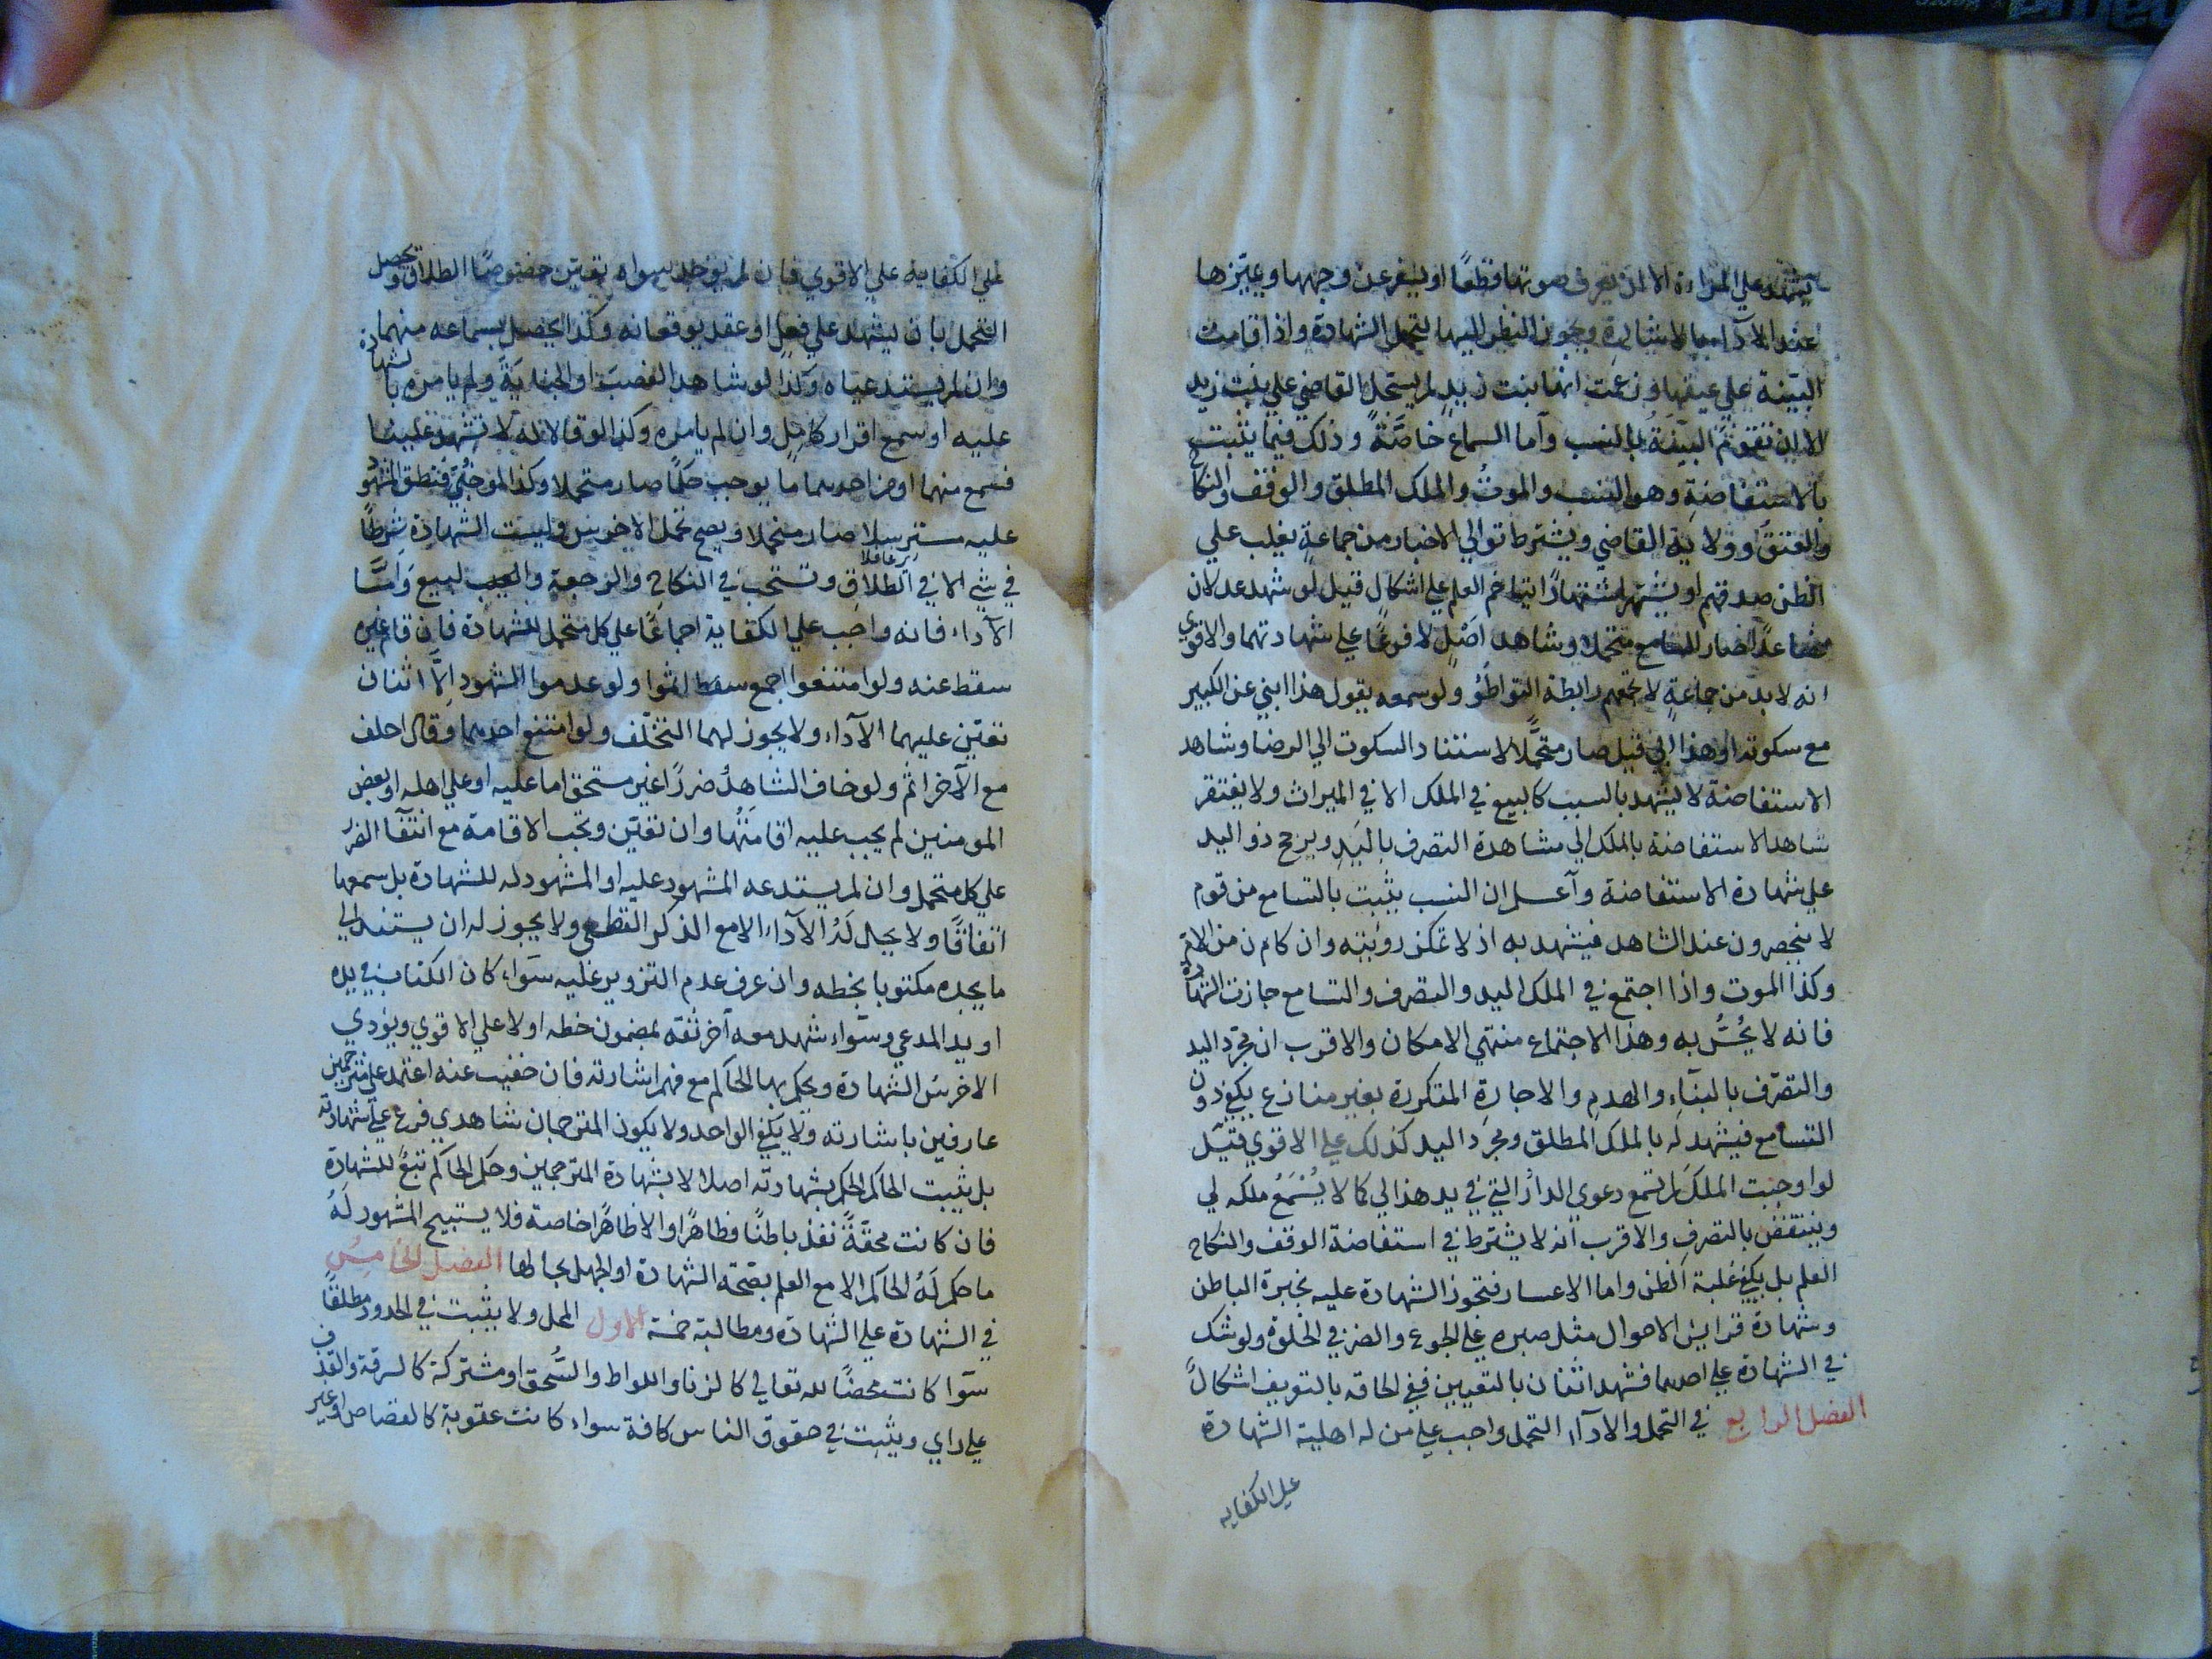 يشهد علي المراءة الا ان يعرف صوتها قطعًا او يسفر عن وجهها ويميّزها
عند الاداء بالاشارة ويجوز النظر اليها لتحمل الشهادة واذا قامت
البيّنة علي عينها وزعمت انها بنت زيدٍ لم يستحل القاضي علي بنت زيد
الا ان تقوم البيّنةُ بالنسب وآما السماع خاصّةً وذلك فيما يثبت
بالاستفاضةِ وهو النسب والموتُ والملك المطلق والوقف والنكاح
والعتق وولاية القاضي ويشترط توالي الاخبار من جماعةٍ يغلب علي
الظن صدقهم او يشتهر اشتهارًا يتاخم العلم علي اشكالٍ قيل لو شهد عدلان
فصاعدًا صار السامع متحملا وشاهد اصْلٍ لا فرعًا علي شهادتهما والاقوي
انه لا بد من جماعةٍ لا تجمعهم رابطة التواطؤ ولو سمعه يقول هذا ابني عن الكبير
مع سكوته او هذا ابي قيل صار متحمّلا لاستناد السكوت الي الرضا وشاهد
الاستفاضة لا يشهد بالسبب كالبيع في الملك الا في الميراث ولا يفتقر
شاهد الاستفاضة بالملك الي مشاهدة التصرف باليَدِ ويرجح ذو اليد
علي شهادة الاستفاضة وآعلم ان النسب يثبت بالتسامع من قوم
لا ينحصرون عند الشاهد فيشهد به اذ لا تمكن رؤيته وان كان من الام
وكذا الموت واذا اجتمع في الملك اليد والتصرف والتسامع جازت الشهادة
فانه لا يُحَسُّ به وهذا الاجتماع منتهي الامكان والاقرب ان مجرّد اليد
والتصرّف بالبنآءِ والهدمِ والاجارة المتكررة بغير منازع يكفي دون
التسامع فيشهد له بالملك المطلق ومجرد اليد كذلك علي الاقوي قيل
لو اوجبت الملكَ لم تسمع دعوي الدارُ التي في يد هذا لي كما لا يُسْمَعُ ملكه لي
وينتقضُ بالتصرفِ والاقرب انه لا يشترط في استفاضة الوقف والنكاح
العلم بل يكفي غلبة الظن واما الاعسار فتجوز الشهادة عليه بخبرة الباطن
وشهادة قراين الاحوال مثل صبره علي الجوع والضر في الخلوة ولو شك
في الشهادة علي احدهما فشهد اثنان بالتعيين ففي الحاقه بالتعريف اشكالٌ
الفصل الرابع في التحمل والادآء التحمل واجب علي من له اهلية الشهادة
علي الكفايه
علي الكفاية علي الاقوي فان لم يوجد سواه تعيّن خصوصًا الطلاق ويحصل
التحمل بان يشهد علي فعلٍ او عقد يوقعانه وكذا يحصل بسماعه منهما
وان لم يستدعياه وكذا لو شاهد الغصبَ او الجنايةَ ولم يامره بالشهادة
عليه او سمع اقرار كاملٍ وان لم يامره وكذا لو قالا له لا تشهد علينا
فسمع منهما او من احدهما ما يوجب حكمًا صار متحملا وكذا لو خُبّيَ فنطق المشهود
عليه مسترسلا صار متحملا ويصح تحمل الاخرس وليست الشهادة شرطًا
في شي الا في الطلاقِ وتستحب في النكاحِ والرجعةِ والبيع وَامّا
الآداء فانه واجب علي الكفاية اجماعًا علي كل متحمل للشهادة فان قام غيره
سقط عنه ولو امتنعوا اجمع اثموا ولو عدموا الشهود الّا اثنان
تعيّن عليهما الآداء ولا يجوز لهما التخلّف ولو امتنع احدهما وقال احلف
مع الآخر اثم ولو خاف الشاهدُ ضررًا غير مستحق اما عليه او علي اهله او بعض
المومنين لم يجب عليه اقامتُها وان تعيّن وتجب الاقامة مع انتفآء الضرر
علي كل متحمل وان لم يستدعه المشهود عليه او المشهود له للشهادة بل سمعها
اتفاقًا ولا يحل لَهُ الآداء الا مع الذكر القطعي ولا يجوز له ان يستند الي
ما يجده مكتوبا بخطه وان عرف عدم التزوير عليه سَواء كان الكتاب في يده
او يد المدعي وسَواء شهد معه آخر ثقه لمضمون خطه اولا علي الاقوي ويؤدي
الاخرس الشهادة ويحكم بها الحاكم مع فهم اشارته فان خفيت عنه اعتمد علي مترجمين
عارفين باشارته ولا يكفي الواحد ولا يكون المترجمان شاهدي فرع علي شهادته
بل يثبت الحاكم الحكم بشهادته اصلا لا بشهادة المترجمين وحكم الحاكم تبعٌ للشهادة
فان كانت محقّةً نفذ باطنًا وظاهرًا والا ظاهرًا خاصة فلا يستبيح المشهود لَهُ
ما حكم لَهُ الحاكم الا مع العلم بصحّة الشهادة او الجهل بحالها الفصل الخامِسُ
في الشهادة علي الشهادة ومطالبته خمسة الاول المحل ولا يثبت في الحدود مطلقًا
سَوآ كانت محضًا لله تعالي كالزنا واللواط والسُّحق او مشتركة كالسرقة والقذف
علي راي ويثبت في حقوق الناس كافة سواء كانت عقوبة كالقصاص او غير